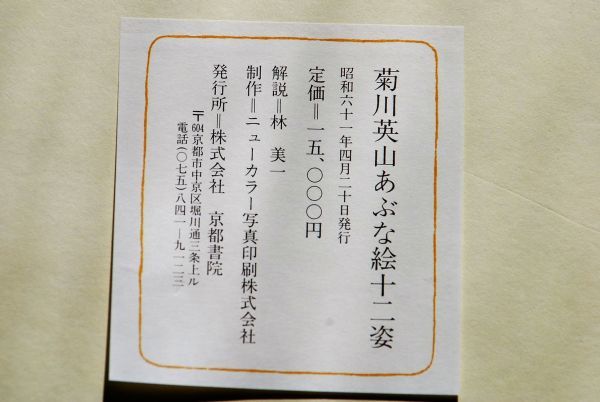 菊川英山あぶな絵十二姿
昭和六十一年四月二十日発行
定価＝一五、〇〇〇円
解説＝林　美一
制作＝ニューカラー写真印刷株式会社
発行所＝株式会社　京都書院
〒604京都市中京区堀川通三条上ル
電話(〇七五)八四一―九一二三